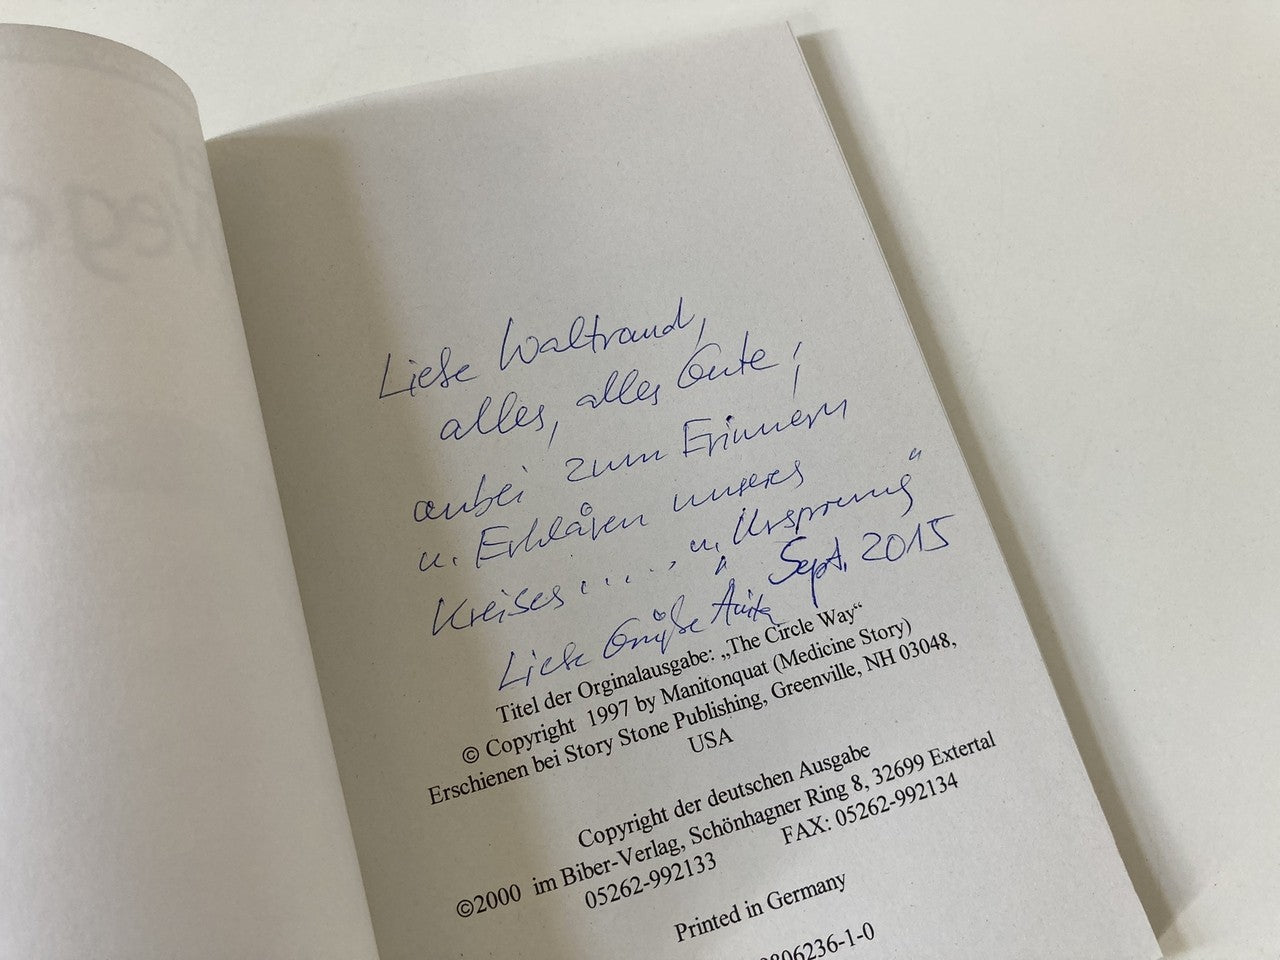 Liebe Waltraud,
alles, alles Gute,
anbei zum Erinnern
u. Erklären unseres
Kreises....., u. "Ursprung"
Liebe Grüße Anita Sept. 2015
Titel der Orginalausgabe: „The Circle Way“
© Copyright 1997 by Manitonquat (Medicine Story)
Erschienen bei Story Stone Publishing, Greenville, NH 03048,
USA
Copyright der deutschen Ausgabe
©2000 im Biber-Verlag, Schönhagner Ring 8, 32699 Extertal
05262-992133 FAX: 05262-992134
Printed in Germany
9806236-1-0